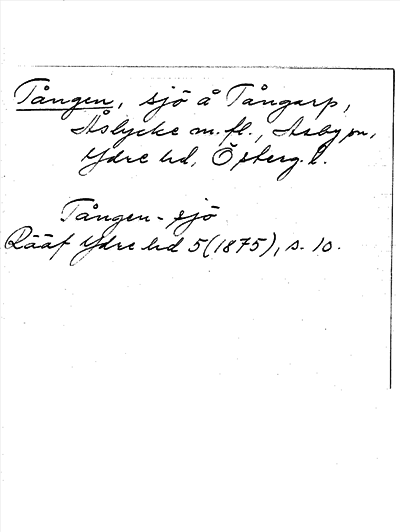 Tången, sjö å Tångarp,
Åslycke m.fl., Asby sn,
Ydre hd, Östberg. l.
Tången-sjö
Rääf Ydre hd 5(1875), s. 10.